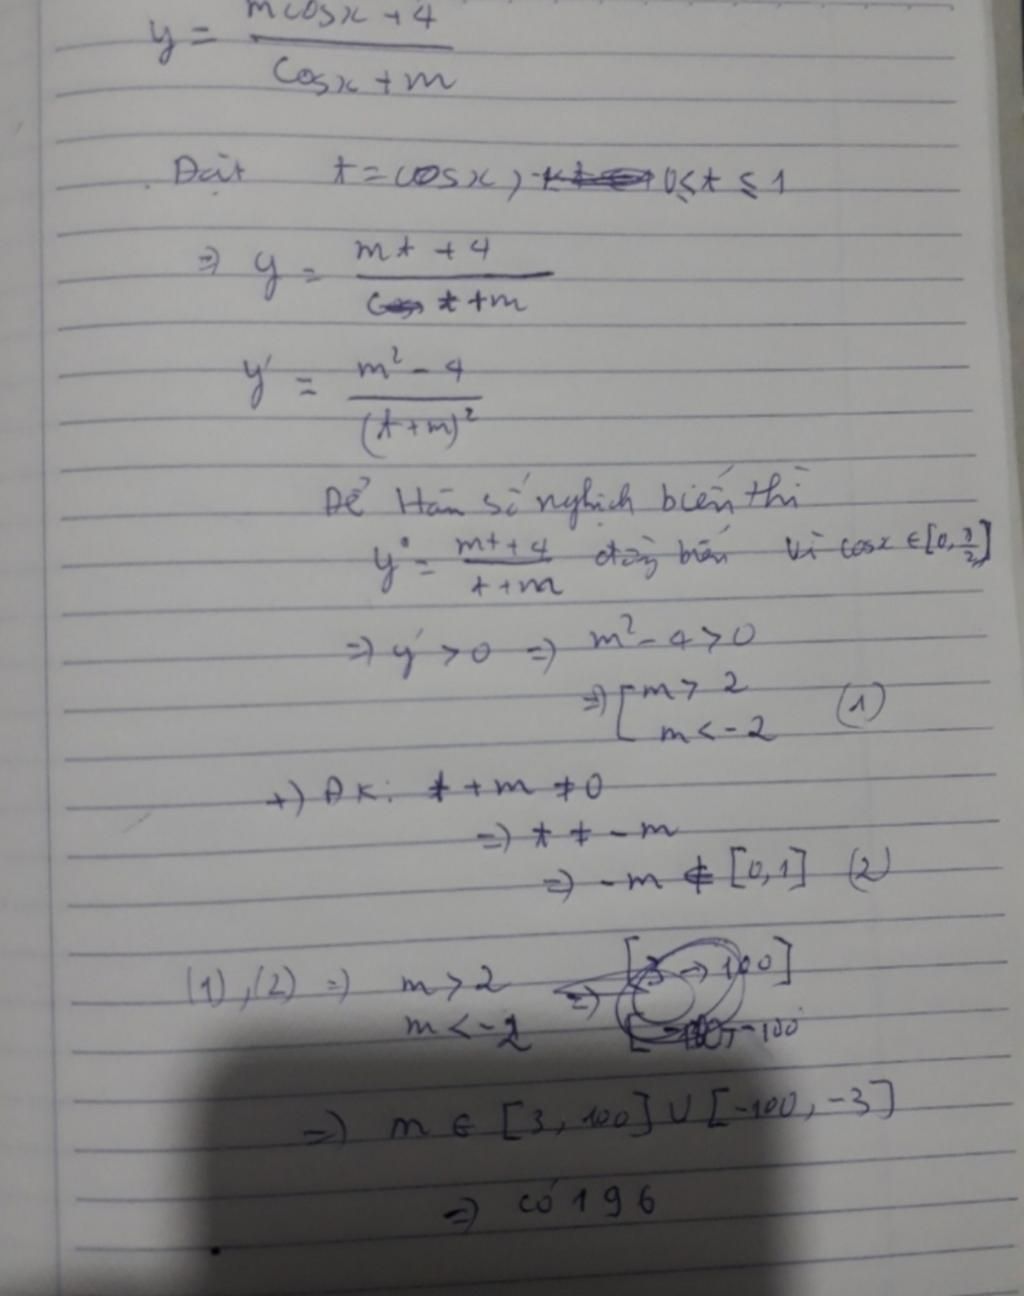 y = (mcosx + 4)/(cosx + m)
Đặt t = cosx, 0 ≤ t ≤ 1
⇒ y = (mt + 4)/(t + m)
y' = (m² - 4)/(t + m)²
Để Hàm số nghịch biến thì
y = (mt + 4)/(t + m) đồng biến vì cosx ∈ [0, π/2]
⇒ y' > 0 ⇒ m² - 4 > 0
⇒ [ m > 2
m < -2 (1)
+) ĐK: t + m ≠ 0
⇒ t ≠ -m
⇒ -m ∉ [0, 1] (2)
(1), (2) ⇒ m > 2 ⇒ [3 → 100]
m < -2 -100
⇒ m ∈ [3, 100] ∪ [-100, -3]
⇒ có 196